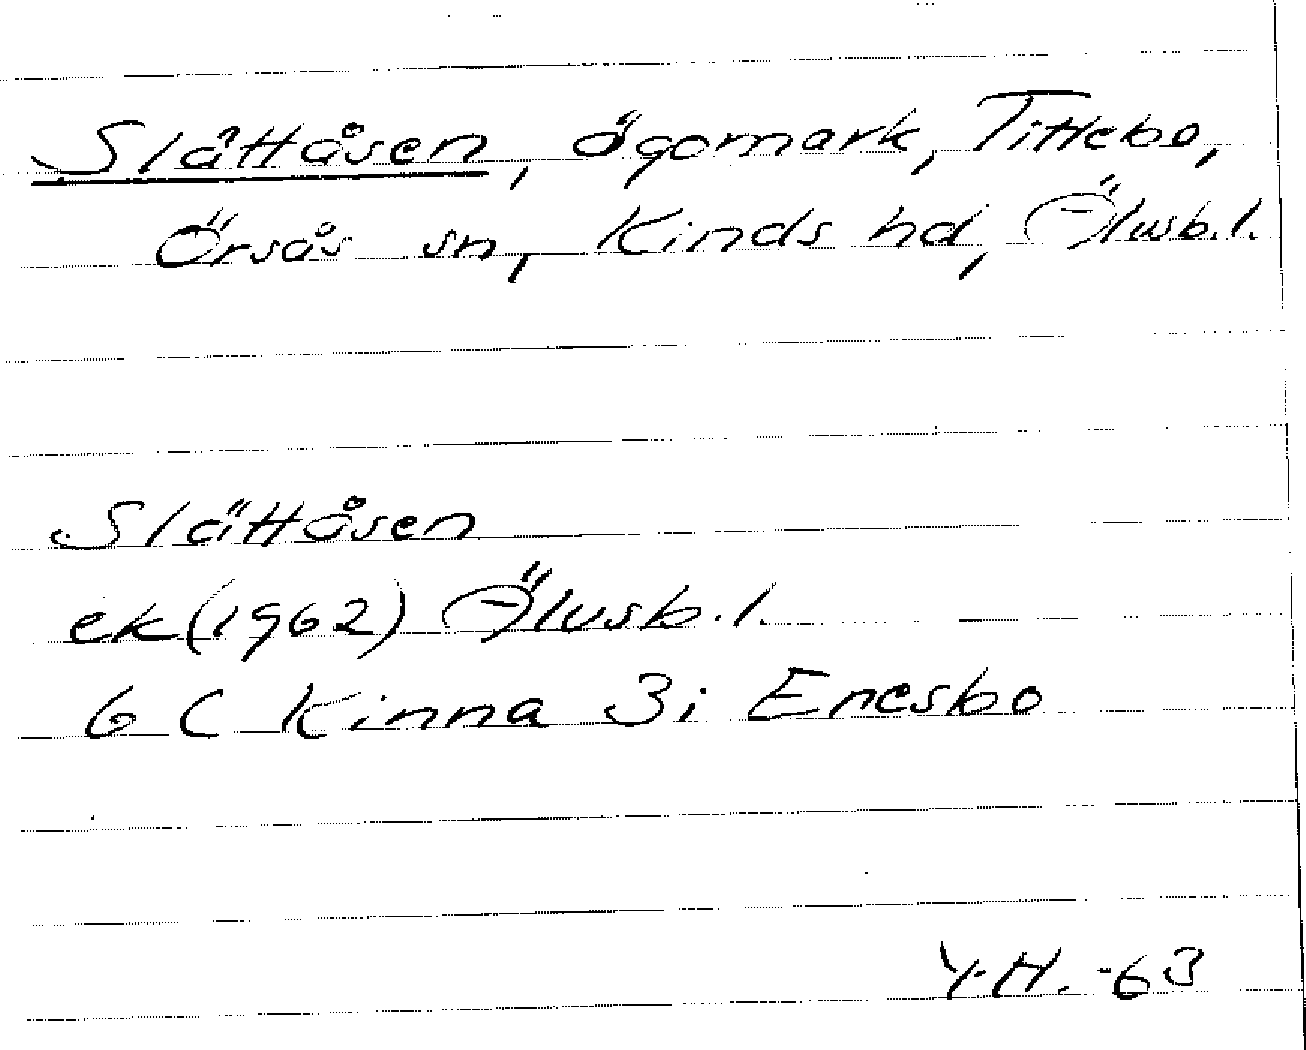 Slättåsen, ägomark, Tittebo,
Örsås sn, Kinds hd, Älvsb.l.
Slättåsen
ek (1962) Älvsb.l.
6 C Kinna 3i Enesbo
Y.H. -63